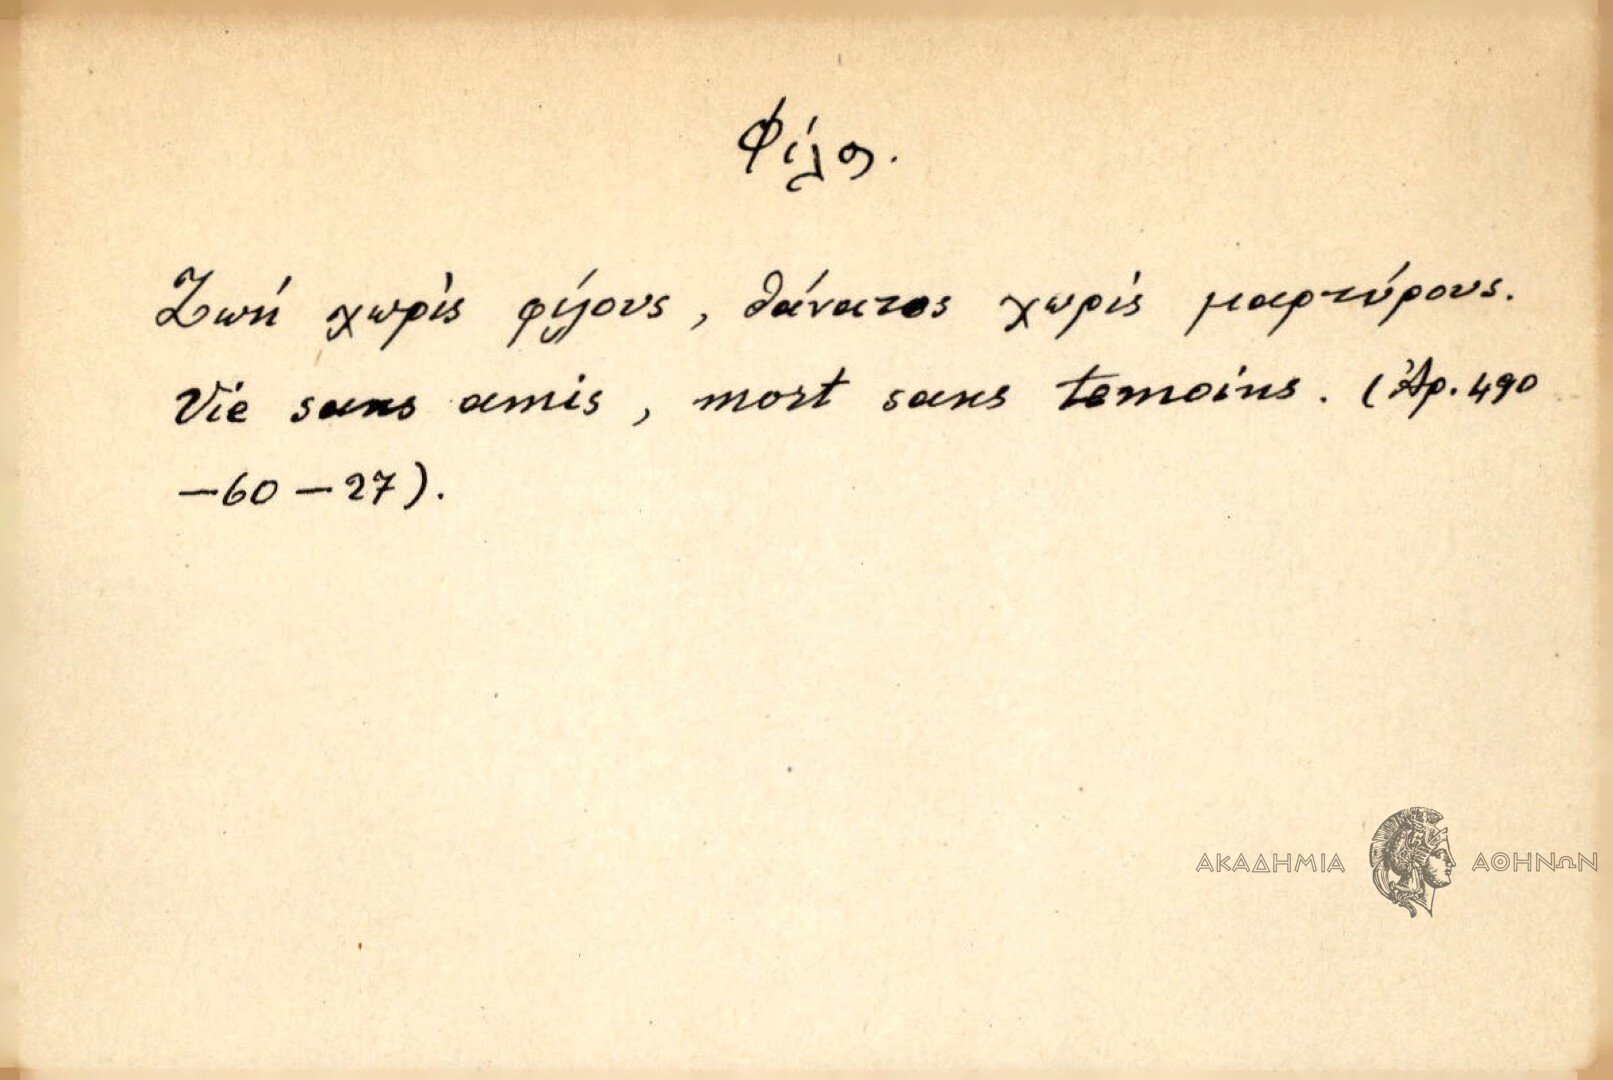 Φίλος.
Ζωή χωρίς φίλους, θάνατος χωρίς μαρτύρους.
Vie sans amis, mort sans temoins. (Ἀρ. 490
—60—27).
ΑΚΑΔΗΜΙΑ ΑΘΗΝΩΝ